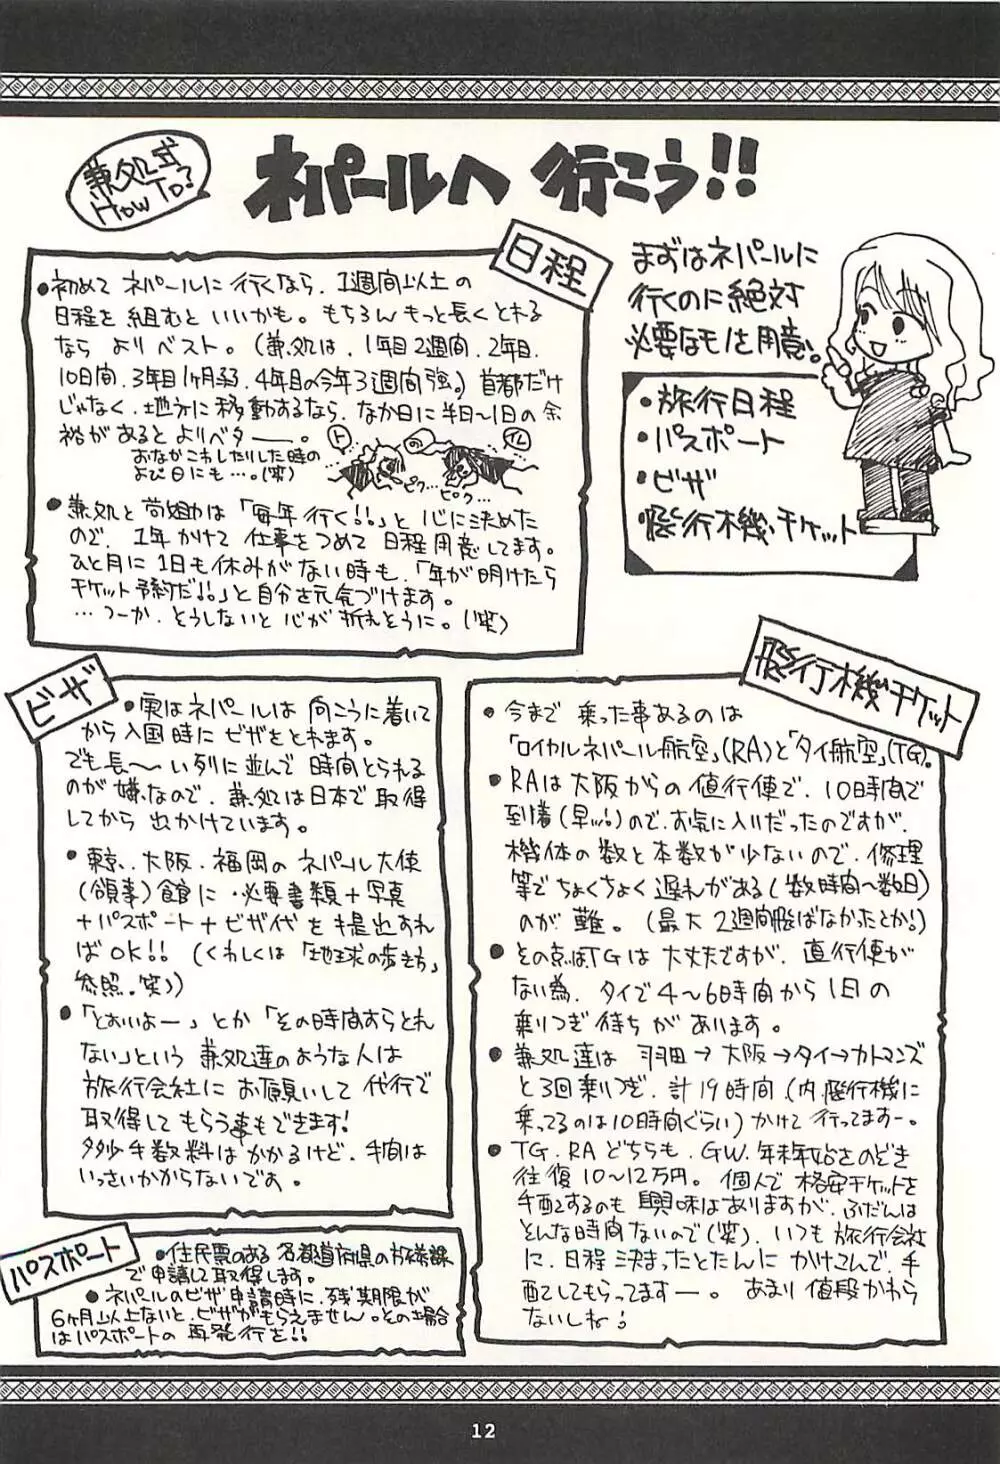 兼処式
HOW TO?
ネパールへ 行こう!!
まずはネパールに
行くのに絶対
必要なモノを用意。
・旅行日程
・パスポート
・ビザ
・飛行機チケット
日程
●初めて ネパールに 行くなら、1週間以上の
日程を 組むと いいかも。もちろん もっと長く とれる
なら よりベスト。(兼処は、1年目2週間、2年目、
10日間、3年目1ヶ月弱、4年目の今年3週間強。) 首都だけ
じゃなく、地方に 移動するなら、なか日に 半日〜1日の 余
裕が あると よりベター―。
おなかこわしたりした時の
よび日にも…。(笑)
ト の イレ
ピク… ピク…
●兼処と 尚姐は「毎年 行く!!」と 心に決めた
ので、1年かけて 仕事をつめて 日程用意してます。
ひと月に 1日も休みが ない時も、「年が明けたら
チケット予約だ!!」と 自分を元気づけます。
…つーか、そうしないと 心が 折れそうに。(笑)
ビザ
●実はネパールは 向こうに着いて
から 入国時に ビザをとれます。
でも長〜い列に並んで 時間とられる
のが 嫌なので、兼処は日本で取得
してから 出かけています。
●東京、大阪、福岡の ネパール大使
(領事)館に、必要書類+写真
+パスポート+ビザ代 を 提出すれ
ば OK!! (くわしくは「地球の歩き方」
参照。笑))
●「とおいよー」とか「その時間すらとれ
ない」という 兼処達のような人は
旅行会社に お願いして 代行で
取得して もらう事もできます!
多少手数料は かかるけど、手間は
いっさいかからないです。
パスポート
●住民票のある 各都道府県の 旅券課
で 申請して 取得します。
●ネパールのビザ 申請時に、残 期限が
6ヶ月以上ないと、ビザが もらえません。その場合
は パスポートの 再発行を!!
飛行機チケット
●今まで 乗った事あるのは
「ロイヤルネパール航空」(RA)と「タイ航空」(TG)。
●RAは 大阪からの 値行便で、10時間で
到着(早ッ!)ので、お気に入りだったのですが、
機体の 数と 本数が 少ないので、修理
等で ちょくちょく 遅れがある(数時間〜数日)
のが 難。(最大 2週間飛ばなかったとか!)
●その点はTGは 大丈夫ですが、直行便が
ない為、タイで 4〜6時間から 1日の
乗りつぎ待ちが あります。
●兼処達は 羽田→大阪→タイ→カトマンズ
と 3回乗りつぎ、計19時間(内、飛行機に
乗ってるのは10時間ぐらい)かけて 行ってますー。
●TG、RA どちらも、GW、年末年始さのぞき
往復10〜12万円。個人で 格安チケットを
手配するのも 興味はありますが、ふだんは
そんな時間ないので(笑)、いつも 旅行会社
に、日程決まったとたんに かけこんで、手
配してもらってますー。あまり 値段かわら
ないしね!
12